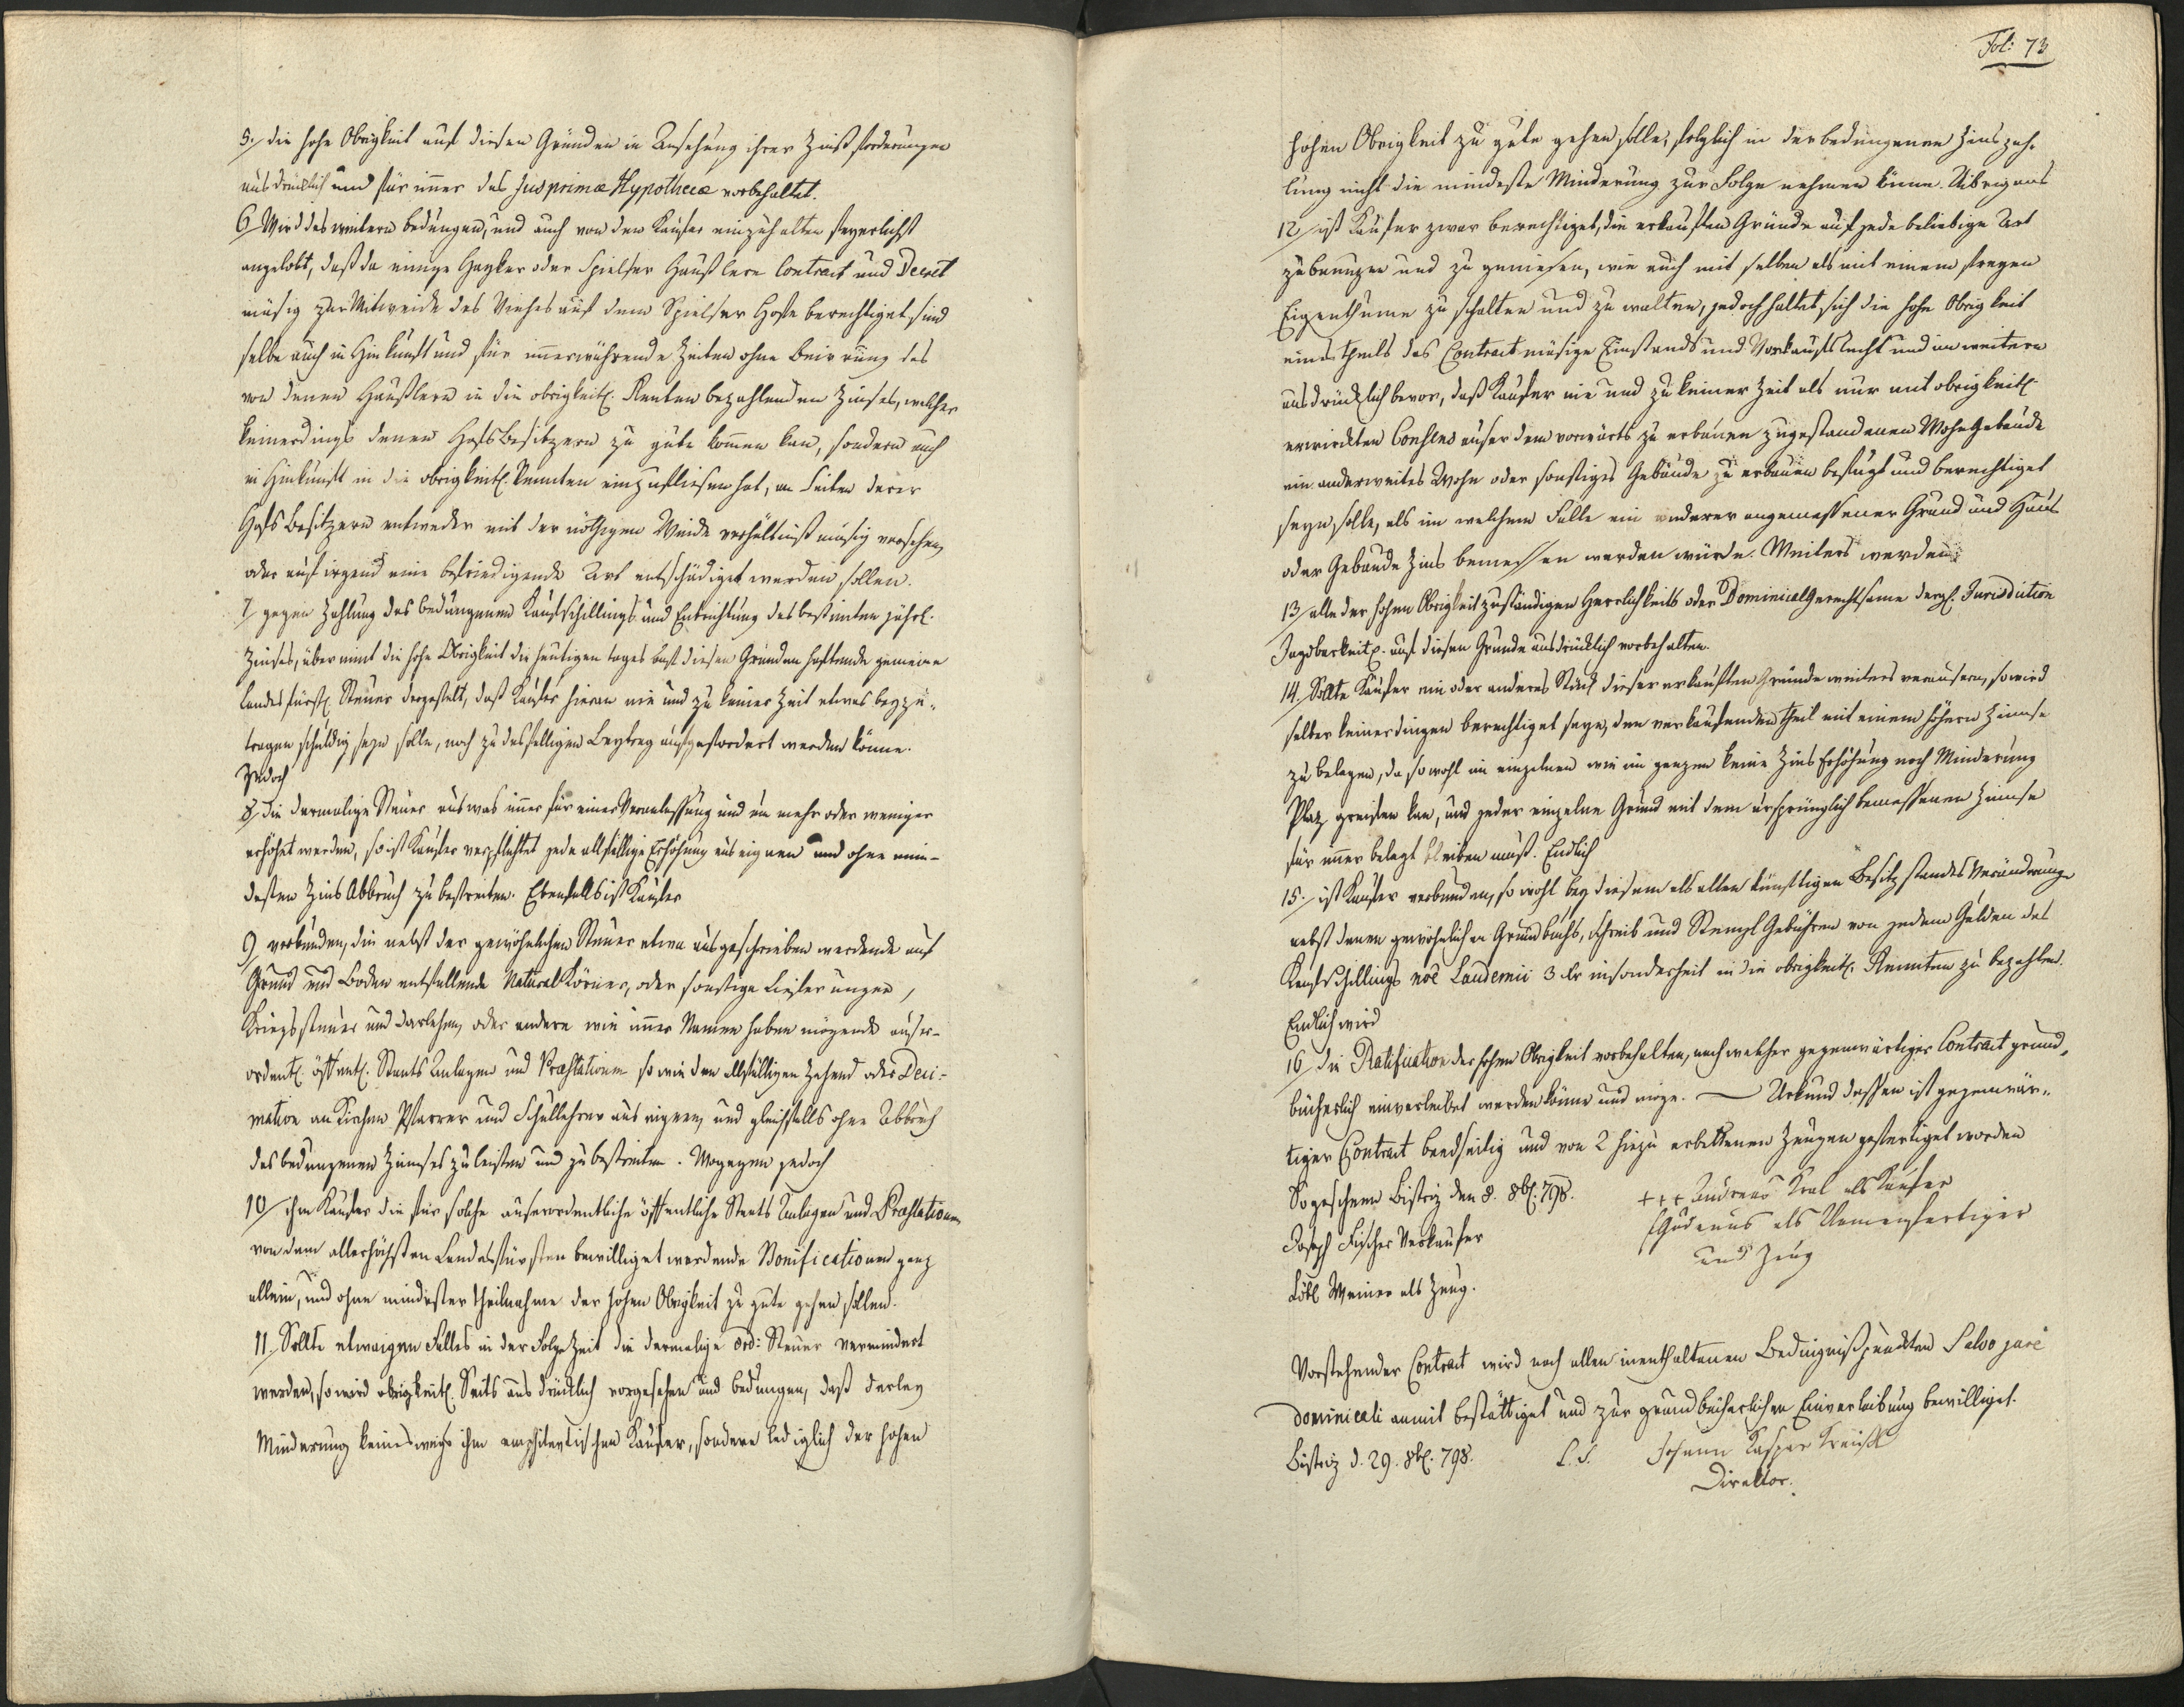 5./ die hohe Obrigkeit auf diesen Gründen in Ansehung ihrer Zinßforderungen
ausdrücklich und für immer das Jus primæ Hypothecæ vorbehaltet.
6/ Wird des weitern bedungen, und auch von dem Kaufer einzuhalten feyerlichst
angelobt, daß da einige Hayker oder Spielser Häußlern Contract und Decret
mäsig zur Mitweide des Viehes auf dem Spielser Hofe berechtiget sind
selbe auch in Hinkunft und für immerwährende Zeiten ohne Beirrung des
von denen Häußlern in die obrigkeitl. Renten bezahlenden Zinses, welcher
keinerdings denen Hofs Besitzern zu gute komen kan, sondern auch
in Hinkunft in die obrigkeitl. Rennten einzufliesen hat, an Seiten derer
Hofs Besitzern entweder mit der nöthigen Weide verhältnißmäsig versehen,
oder auf irgend eine befriedigende Art entschädiget werden sollen.
7/ gegen Zahlung des bedungenen Kaufschillings und Entrichtung des bestimten jährl.
Zinses, übernimt die hohe Obrigkeit die heutigen tages auf diesen Gründen haftende gemeine
landesfürstl. Steuer dergestalt, daß Kaufer hieran nie und zu keiner Zeit etwas beyzu-
tragen schuldig seyn solle, noch zu desfelligen Beytrag aufgefordert werden könne.
Jedoch
8/ Die dermalige Steuer aus was immer für einer Veranlassung und um mehr oder weniger
erhöhet werden, so ist Kaufer verpflichtet jede allfällige Erhöhung aus eignen und ohne min-
desten Zins Abbruch zu bestreiten. Ebenfalls ist Kaufer
9/ verbunden, die nebst der gewöhnlichen Steuer etwa ausgeschrieben werdende auf
Grund und Boden entfallende Natural Körner, oder sonstige Lieferungen,
Kriegssteuer und Darlehen, oder andere wie immer Namen haben mögende auser-
ordentl. öffentl. Staats Anlagen und Præstationen so wie den allfälligen Zehend oder Deci-
mation an Kirchen Pfarrer und Schullehrer aus eignen, und gleichfalls ohne Abbruch
des bedungenen Zinnses zu leisten und zu bestreiten. Wogegen jedoch
10/ ihm Kaufer die für solche auserordentliche öffentliche Staats Anlagen und Præstationen
von dem allerhöchsten Landesfürsten bewilliget werdende Bonificationen ganz
allein, und ohne mindester Theilnahme der hohen Obrigkeit zu gute gehen sollen.
11. Sollte etwaigen Falles in der Folge Zeit die dermalige ord: Steuer vermindert
werden, so wird obrigkeitl. Seits ausdrücklich vorgesehen und bedungen, daß derley
Minderung keinesweigs ihm emphitevtischen Kaufer, sondern lediglich der hohen
Fol: 73
hohen Obrigkeit zu gute gehen solle, folglich in der bedungenen Zinszah-
lung nicht die mindeste Minderung zur Folge nehmen könne. Uibrigens
12/ ist Kaufer zwar berechtiget, die erkauften Gründe auf jede beliebige Art
zu benuzen und zu geniesen, wie auch mit selben als mit einem freyen
Eigenthume zu schalten und zu walten, jedoch haltet sich die hohe Obrigkeit
eines theils das Contractmäsige Einstands und Vorkaufsrecht und im weitern
ausdrücklich bevor, daß Kaufer nie und zu keiner Zeit als nur mit obrigkeitl.
erwirckten Consens auser dem vorwärts zu erbauen zugestandenen Wohn Gebäude
ein anderweites Wohn oder sonstiges Gebäude zu erbauen befugt und berechtiget
seyn solle, als im welchem Falle ein anderer angemessener Grund und Haus
oder Gebäude Zins bemessen werden würde. Weiters werden
13/ alle der hohen Obrigkeit zuständigen Herrlichkeits oder Dominical Gerechtsame dergl. Jurisdiction
Jagdbarkeit. auf diesen Grunde ausdrücklich vorbehalten.
14. Sollte Kaufer ein oder anderes Stück dieser erkauften Gründe weiters veräusern, so wird
selber keinerdingen berechtiget seyn, den verkaufenden theil mit einem höhern Zinnse
zu belegen, da sowohl im einzelnen wie im ganzen keine Zins Erhöhung noch Minderung
Plaz greifen kan, und jeder einzelne Grund mit dem ursprünglich bemessenen Zinnse
für immer belegt bleiben muß. Endlich
15./ ist Kaufer verbunden, sowohl bey diesem als allen künftigen Besitzstandes Veränderunge
nebst denen gewöhnlichen Grundbuchs, Schreib und Stempl Gebühren von jedem Gulden des
Kaufschillings noê Laudemii 3 Kr insonderheit in die obrigkeitl. Rennten zu bezahlen.
Endlich wird
16/ die Ratification der hohen Obrigkeit vorbehalten, nach welcher gegenwärtiger Contract grund-
bücherlich einverleibet werden könne und möge. — Urkund dessen ist gegenwär-
tiger Contract beedseitig und von 2 hiezu erbettenen Zeugen gefertiget worden
So geschehen Bistriz den 8. 8bl. 798.
+++ Andreas Kral als Käufer
Joseph Fischer Verkaufer
Gudenus als Namensfertiger
und Zeug
Löbl Weiner als Zeug.
Vorstehender Contract wird nach allen innenthaltenen Bedingnißpunckten Salvo jure
dominicali anmit bestättiget und zur grundbücherlichen Einverleibung bewilliget.
Bistriz d. 29. 8bl. 798.
L. S. Johann Kaspar
Direktor.